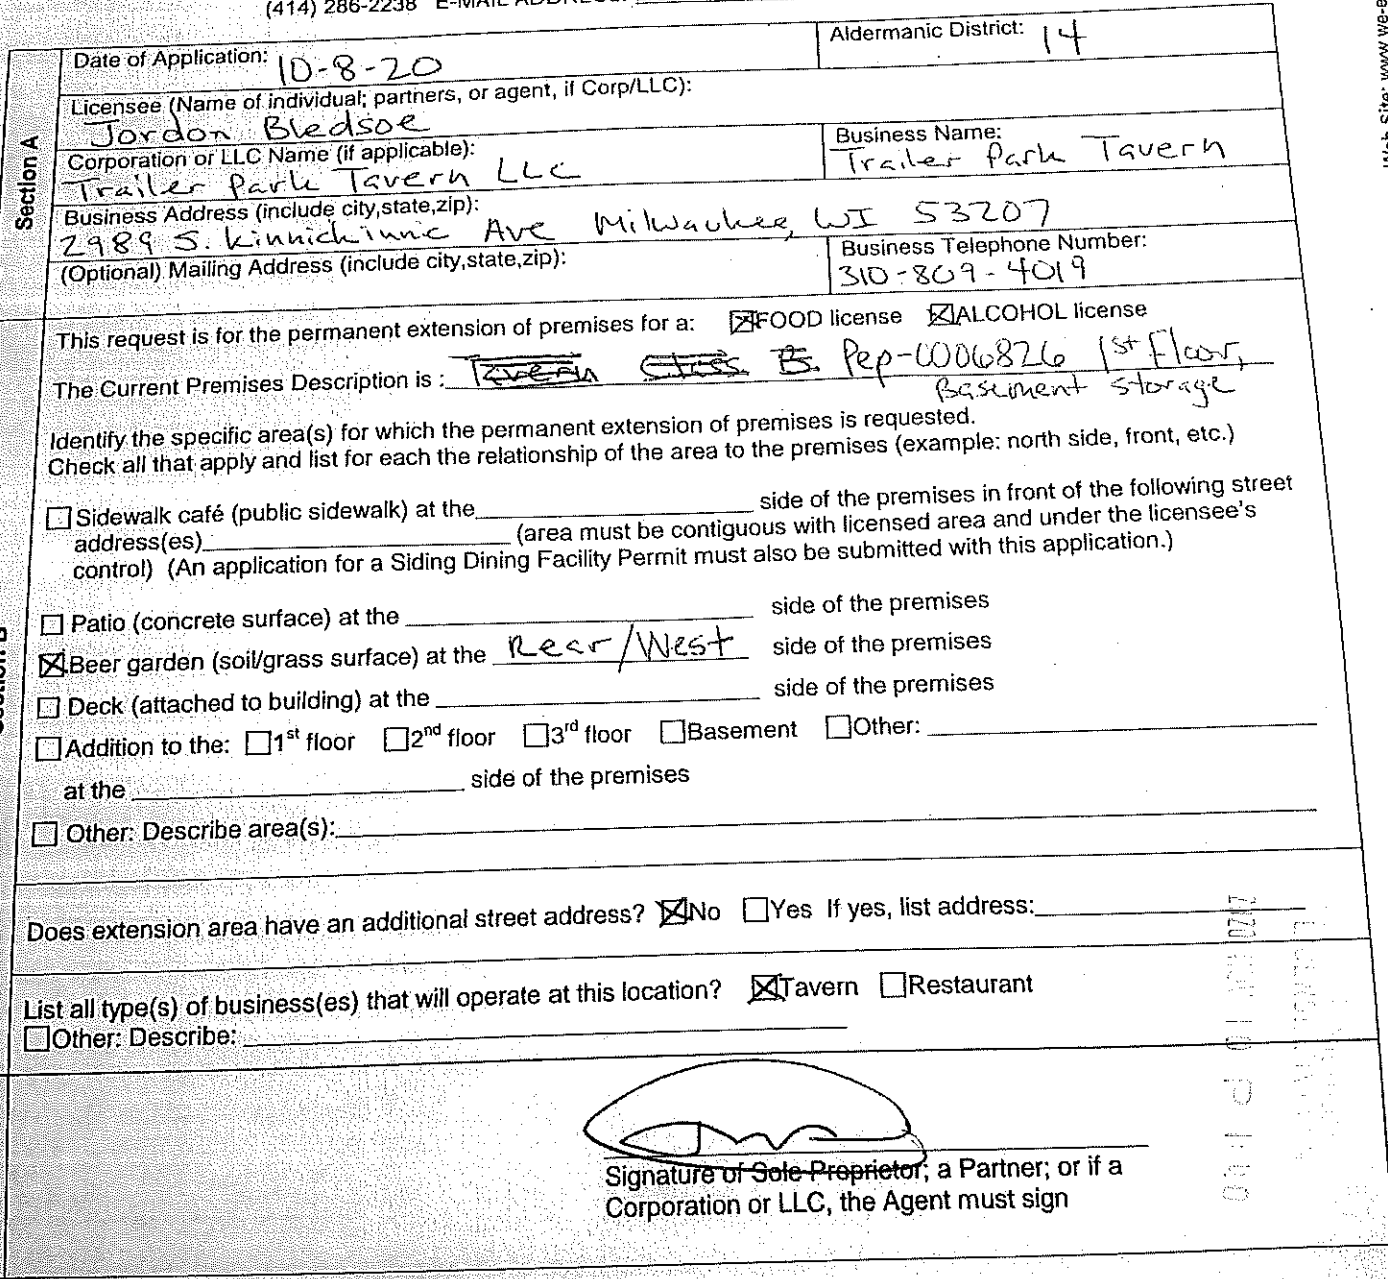 (414) 286-2238 E-MAIL ADDRESS:
Date of Application: 10-8-20
Aldermanic District: 14
Licensee (Name of individual; partners, or agent, if Corp/LLC):
Jordon Bledsoe
Section A
Corporation or LLC Name (if applicable):
Trailer Park Tavern LLC
Business Name:
Trailer Park Tavern
Business Address (include city,state,zip):
2989 S. Kinnickinnic Ave Milwaukee, WI 53207
(Optional) Mailing Address (include city,state,zip):
Business Telephone Number:
310-809-4019
This request is for the permanent extension of premises for a: FOOD license ALCOHOL license
The Current Premises Description is : Tavern Class B. Pep-0006826 1st Floor,
Basement storage
Identify the specific area(s) for which the permanent extension of premises is requested.
Check all that apply and list for each the relationship of the area to the premises (example: north side, front, etc.)
Sidewalk café (public sidewalk) at the side of the premises in front of the following street
address(es) (area must be contiguous with licensed area and under the licensee's
control) (An application for a Siding Dining Facility Permit must also be submitted with this application.)
Patio (concrete surface) at the side of the premises
Beer garden (soil/grass surface) at the Rear/West side of the premises
Deck (attached to building) at the side of the premises
Addition to the: 1st floor 2nd floor 3rd floor Basement Other:
at the side of the premises
Other: Describe area(s):
Does extension area have an additional street address? No Yes If yes, list address:
List all type(s) of business(es) that will operate at this location? Tavern Restaurant
Other: Describe:
Signature of Sole Proprietor; a Partner; or if a
Corporation or LLC, the Agent must sign